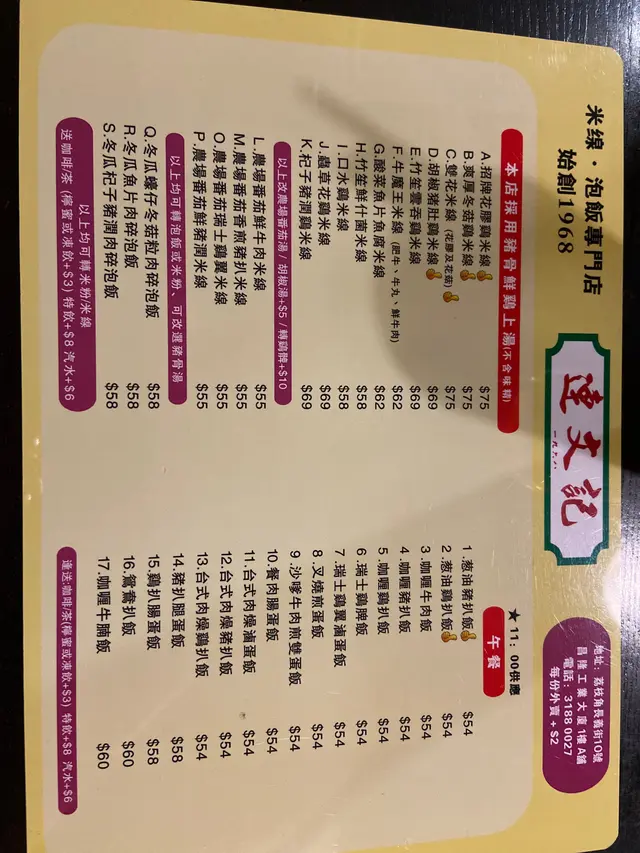 米线·泡飯專門店
始創1968
達文記
一九六八
地址: 荔枝角長義街10號
昌隆工業大廈1樓 A舖
電話: 3188 0027
每份外賣 + $2
本店採用豬骨鮮鷄上湯(不含味精)
A.招牌花膠鷄米線 $75
B.爽厚冬菇鷄米線 $75
C.雙花米線 (花膠及花菇) $75
D.胡椒豬肚鷄米線 $69
E.竹笙雲吞鷄米線 $69
F.牛魔王米線 (肥牛、牛丸、鮮牛肉) $62
G.酸菜魚片魚腐米線 $62
H.竹笙鮮什菌米線 $58
I.口水鷄米線 $58
J.蟲草花鷄米線 $69
K.杞子豬潤鷄米線 $69
以上改農場番茄湯 / 胡椒湯+$5 / 轉鷄髀+$10
L.農場番茄鮮牛肉米線 $55
M.農場番茄香煎豬扒米線 $55
O.農場番茄瑞士鷄翼米線 $55
P.農場番茄鮮豬潤米線 $55
以上均可轉泡飯或米粉、可改選豬骨湯
Q.冬瓜蠔仔冬菇粒肉碎泡飯 $58
R.冬瓜魚片肉碎泡飯 $58
S.冬瓜杞子豬潤肉碎泡飯 $58
以上均可轉米粉/米線
送咖啡/茶 (檸蜜或凍飲+$3) 特飲+$8 汽水+$6
★11：00供應
午餐
1 .葱油豬扒飯 $54
2 .葱油鷄扒飯 $54
3 .咖喱牛肉飯 $54
4 .咖喱豬扒飯 $54
5 .咖喱鷄扒飯 $54
6 .瑞士鷄脾飯 $54
7 .瑞士鷄翼滷蛋飯 $54
8 .叉燒煎蛋飯 $54
9 .沙嗲牛肉煎雙蛋飯 $54
10.餐肉腸蛋飯 $54
11.台式肉燥滷蛋飯 $54
12.台式肉燥豬扒飯 $54
13.台式肉燥鷄扒飯 $54
14.豬扒腿蛋飯 $58
15.鷄扒腸蛋飯 $58
16.鴛鴦扒飯 $60
17.咖喱牛腩飯 $60
達送:咖啡/茶(檸蜜或凍飲+$3) 特飲+$8 汽水+$6